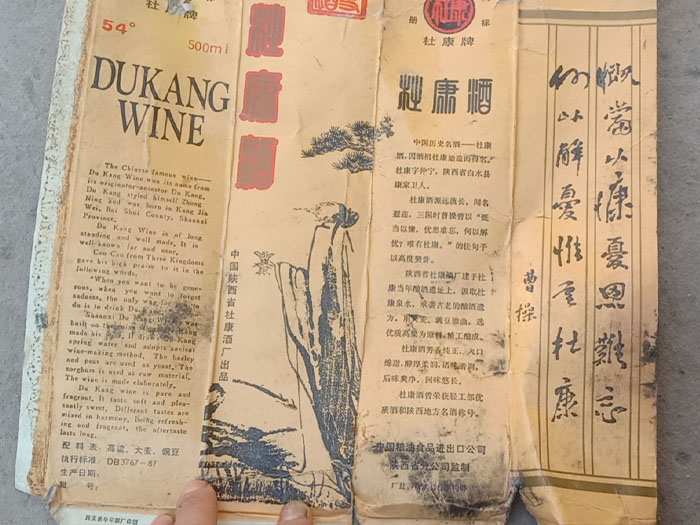 杜康牌
54°
500ml
DUKANG
WINE
The Chinese famous wine——
Du Kang Wine was its name from
its originator-ancestor Du Kang.
Du Kang styled himself Zhong
Ning and was born in Kang Jia
Wei, Bai Shui County, Shaanxi
Province.
Du Kang Wine is of long
standing and well made, It is
well-known far and near,
Cao Cao from Three Kingdoms
gave his hick praise to it in the
following words,
"When you want to be gene-
rous, when you want to forget
sadness, the only way for
do is to drink Du Kang
Shaanxi Du Kang
built on the
made his
spring water and adopts ancient
wine-making method, The barley
and peas are used as yeast, The
sorghum is used as raw material,
The wine is made elaborately.
Du Kang wine is pure and
fragrant, It tasts soft and plea-
santly sweet, Different tastes are
mixed in harmony, Being refresh-
ing and fragrant, the aftertaste
lasts long.
配料表：高粱、大麦、豌豆
执行标准：DB3767-87
生产日期：
批号：
杜康酒
中国陕西省杜康酒厂出品
册
标
杜康牌
杜康酒
中国历史名酒——杜康
酒，因酒祖杜康始造而得名。
杜康字仲宁，陕西省白水县
康家卫人。
杜康酒源远流长，闻名
遐迩，三国时曹操曾以“慨
当以慷，忧思难忘，何以解
忧？唯有杜康。”的佳句予
以高度赞誉。
陕西省杜康酒厂建于杜
康当年酿酒遗址上，汲取杜
康泉水，承袭古老的酿酒遗
方，用大麦、豌豆踩曲，选
优质高粱为原料，精工酿成。
杜康酒芳香纯正，入口
绵甜，醇厚柔和，诸味谐调，
后味爽净，回味悠长。
杜康酒曾荣获轻工部优
质酒和陕西地方名酒称号。
中国粮油食品进出口公司
陕西省分公司监制
慨当以慷憂思難忘
何以解憂惟有杜康
曹操